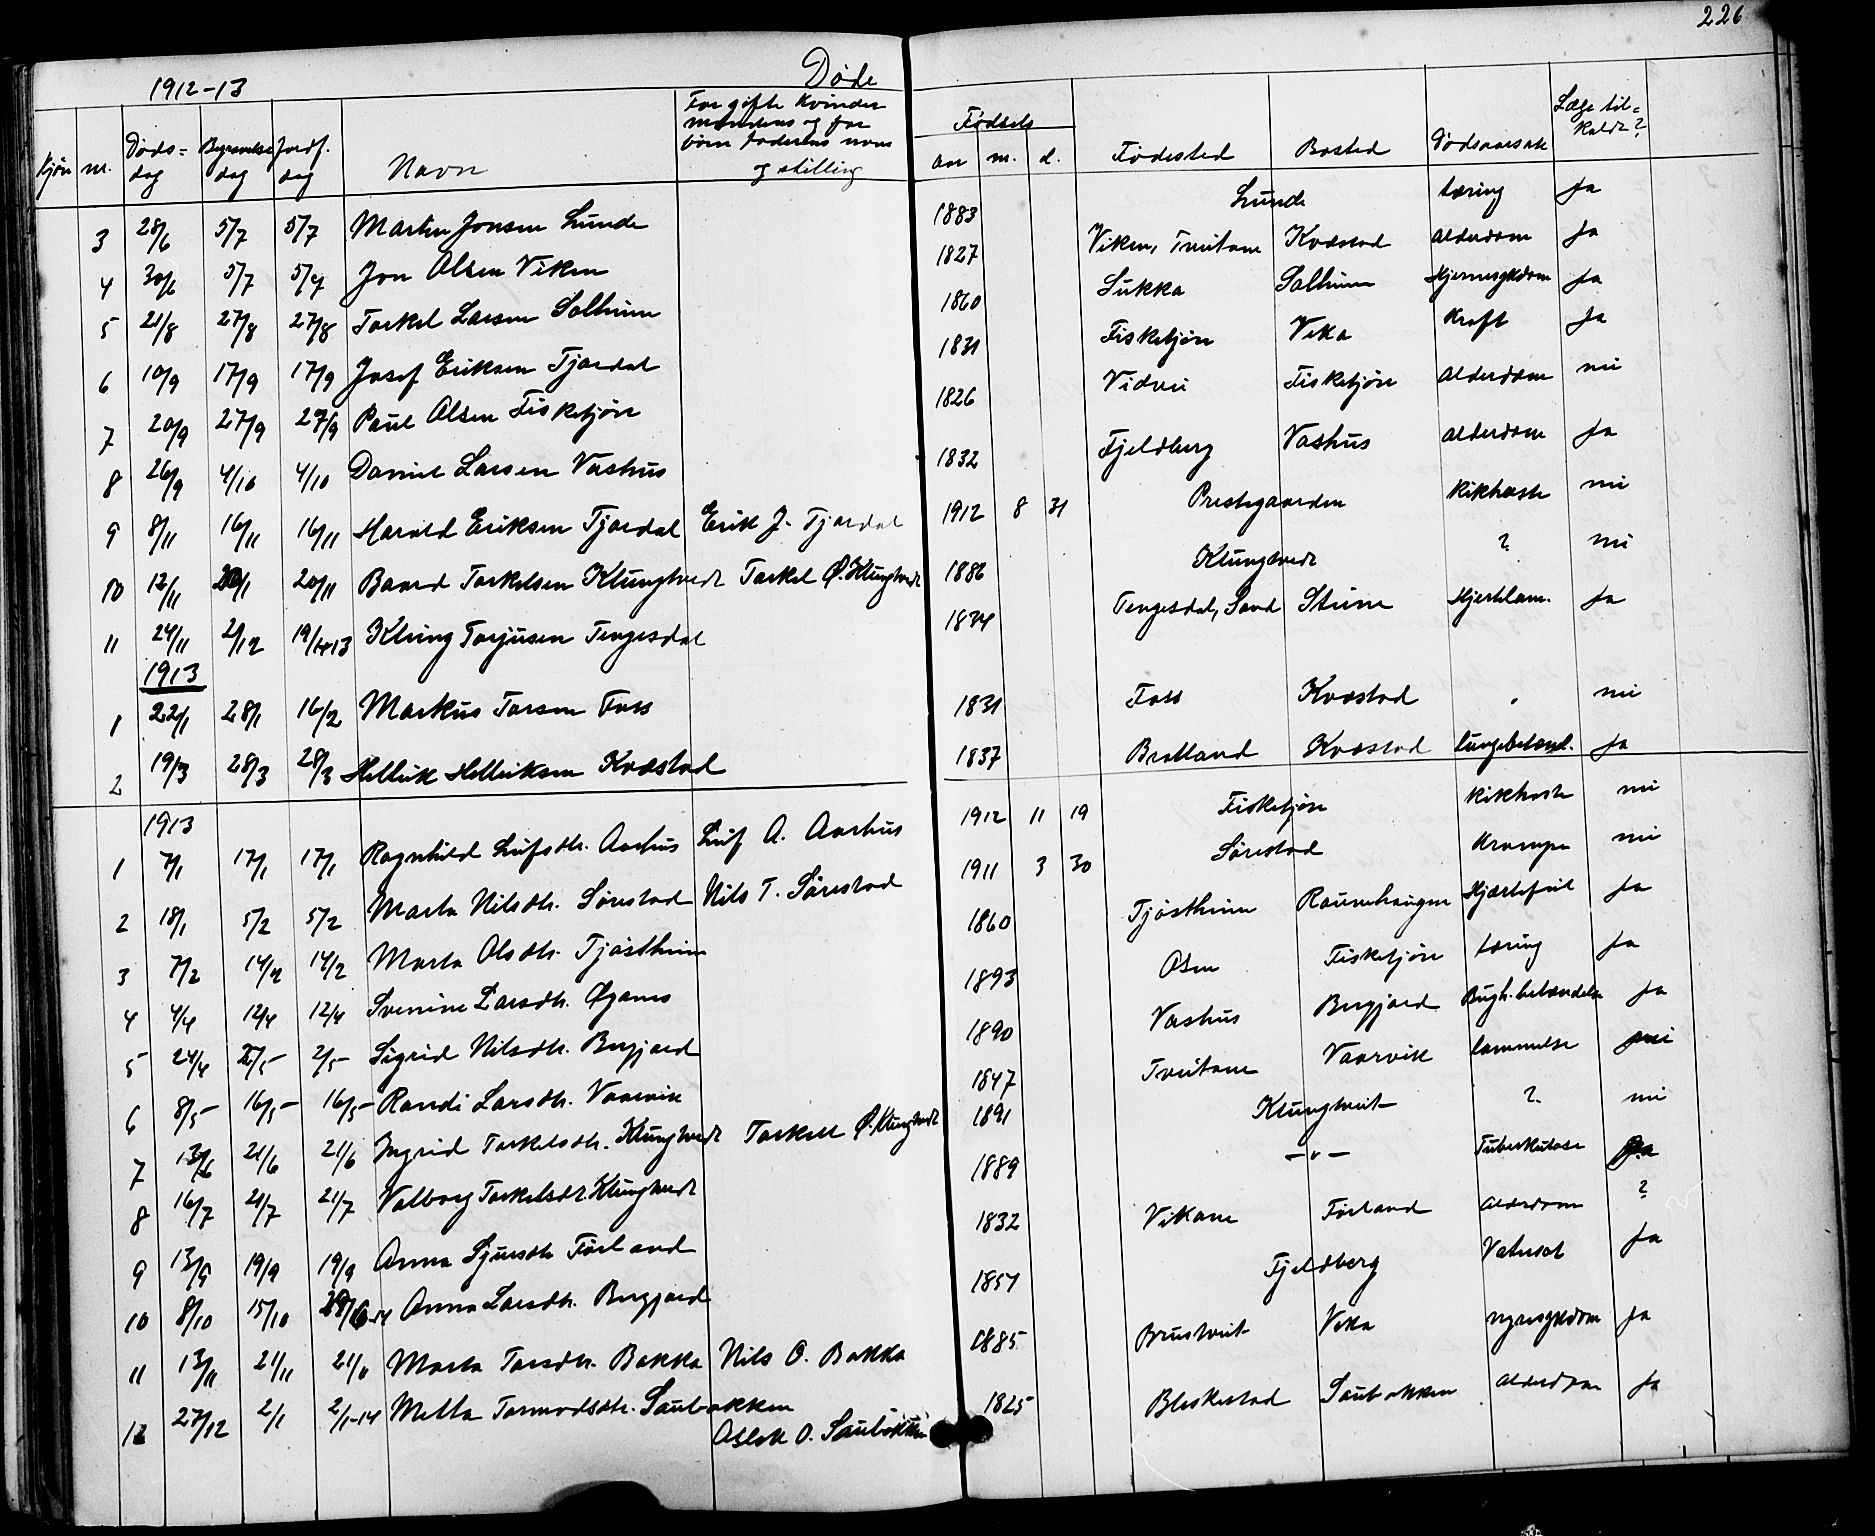 226
1912-13 Døde
kjøn nr. Døds= dag Begravelse dag Jordf. dag Navn For gifte kvinder mandens og for børn faderens navn og stilling Fødsels aar m. d. Fødested Bosted Dødsaarsak Læge til= kaldt?
3 28/6 5/7 5/7 Martin Jonsen Lunde 1883 Lunde tæring Ja
4 30/6 5/7 5/7 Jon Olsen Viken 1827 Viken, Tveitane Kvæstad alderdom Ja
5 21/8 27/8 27/8 Torkel Larsen Solheim 1860 Sukka Solheim Hjernesykdom Ja
6 10/9 17/9 17/9 Josef Eriksen Tjordal 1831 Fisketjøn Veka Kræft Ja
7 20/9 27/9 27/9 Paul Olsen Fisketjøn 1826 Vidvei Fisketjøn alderdom nei
8 26/9 4/10 4/10 Daniel Larsen Vashus 1832 Fjeldberg Vashus alderdom Ja
9 8/11 16/11 16/11 Harald Eriksen Tjordal Erik J. Tjordal 1912 8 31 Prestegaarden kikhoste nei
10 12/11 20/11 20/11 Baard Torkelsen Klungtvedt Torkel Ø. Klungtvedt 1886 Klungtvedt ? nei
11 24/11 2/12 19/1 1913 Kleng Torjusen Tengesdal 1824 Tengesdal, Sand Steine Hjertelam. Ja
1913
1 22/1 28/1 16/2 Markus Torsen Foss 1831 Foss Kvæstad " nei
2 19/3 28/3 28/3 Hellik Helliksen Kvæstad 1837 Bratland Kvæstad lungebetænd. Ja
1913
1 7/1 17/1 17/1 Ragnhild Leifsdtr. Aarhus Leif A. Aarhus 1912 11 19 Fisketjøn kikhoste nei
2 18/1 5/2 5/2 Marta Nilsdtr. Sørestad Nils T. Sørestad 1911 3 30 Sørestad Krampe nei
3 7/2 14/2 14/2 Marta Olsdtr. Tjøstheim 1860 Tjøstheim Raunehaugen Hjærtefeil Ja
4 4/4 12/4 12/4 Svenine Larsdtr. Øgaves 1893 Osen Fisketjøn tæring Ja
5 24/4 2/5 2/5 Sigrid Nilsdtr. Bergjord 1890 Vashus Bergjord Bugh. betændelse Ja
6 8/5 16/5 16/5 Randi Larsdtr. Vaarvik 1847 Tveitane Vaarvik lammelse nei
7 13/6 21/6 21/6 Ingrid Torkelsdtr. Klungtvedt Torkell Ø. Klungtvedt 1891 Klungtveit ? nei
8 16/7 21/7 21/7 Valborg Torkelsdtr. Klungtvedt 1889 -"- Tuberkulose Ja
9 13/9 19/9 19/9 Anna Sjursdtr Førland 1832 Vikane Førland alderdom ?
10 8/10 15/10 Anna Larsdtr. Bergjord 1851 Fjeldberg Vatersot Ja
11 13/11 21/11 21/11 Marta Torsdtr. Bakka Nils O. Bakka 1885 Brustveit Veka nyresykdom Ja
12 27/12 2/1 2/1-14 Metta Tormodsdtr. Saubrekken Aslak O. Saubrekken 1825 Bleskestad Saubrekken alderdom Ja